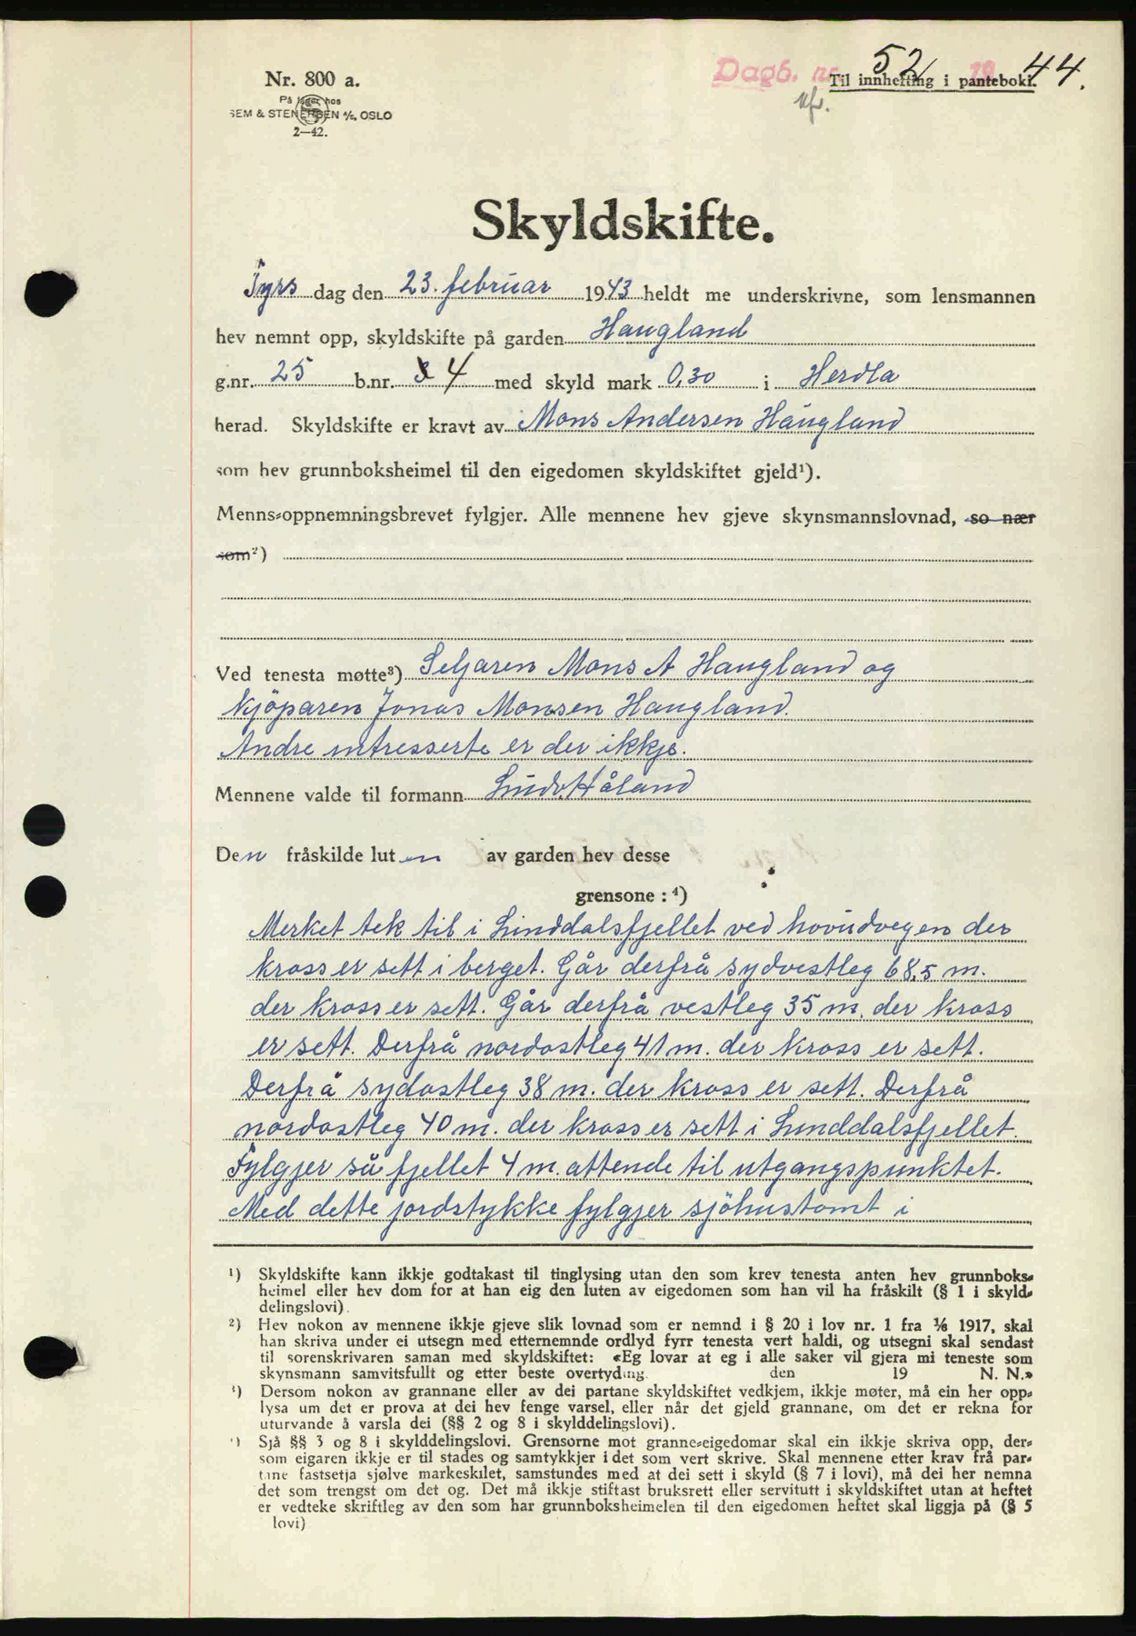 Dagb. nr. 52 1944.
Nr. 800 a. Til innhefting i pantebok.
På lager hos
SEM & STENERSEN A/S, OSLO
2—42.
Skyldskifte.
Tyrs dag den 23. februar 1943 heldt me underskrivne, som lensmannen
hev nemnt opp, skyldskifte på garden Haugland
g.nr. 25 b.nr. 4 med skyld mark 0,30 i Herdla
herad. Skyldskifte er kravt av Mons Andersen Haugland
som hev grunnboksheimel til den eigedomen skyldskiftet gjeld¹).
Menns-oppnemningsbrevet fylgjer. Alle mennene hev gjeve skynsmannslovnad, so nær
som²)
Ved tenesta møtte³) Seljaren Mons A Haugland og
Kjöparen Jonas Monsen Haugland.
Andre intresserte er der ikkje.
Mennene valde til formann Ludv. Håland
Den fråskilde luten av garden hev desse
grensone : ⁴)
Merket tek til i Lunddalsfjellet ved hovudvegen der
kross er sett i berget. Går derfrå sydvestleg 68,5 m.
der kross er sett. Går derfrå vestleg 35 m. der kross
er sett. Derfrå nordostleg 41 m. der kross er sett.
Derfrå sydostleg 38 m. der kross er sett. Derfrå
nordostleg 40 m. der kross er sett i Lunddalsfjellet.
Fylgjer så fjellet 4 m. attende til utgangspunktet.
Med dette jordstykke fylgjer sjöhustomt i
¹) Skyldskifte kann ikkje godtakast til tinglysing utan den som krev tenesta anten hev grunnboks-
heimel eller hev dom for at han eig den luten av eigedomen som han vil ha fråskilt (§ 1 i skyld-
delingslovi).
²) Hev nokon av mennene ikkje gjeve slik lovnad som er nemnd i § 20 i lov nr. 1 fra ⅙ 1917, skal
han skriva under ei utsegn med etternemnde ordlyd fyrr tenesta vert haldi, og utsegni skal sendast
til sorenskrivaren saman med skyldskiftet: «Eg lovar at eg i alle saker vil gjera mi teneste som
skynsmann samvitsfullt og etter beste overtyding. den 19 N. N.»
³) Dersom nokon av grannane eller av dei partane skyldskiftet vedkjem, ikkje møter, må ein her opp-
lysa um det er prova at dei hev fenge varsel, eller når det gjeld grannane, om det er rekna for
uturvande å varsla dei (§§ 2 og 8 i skylddelingslovi).
⁴) Sjå §§ 3 og 8 i skylddelingslovi. Grensorne mot granne-eigedomar skal ein ikkje skriva opp, der-
som eigaren ikkje er til stades og samtykkjer i det som vert skrive. Skal mennene etter krav frå par-
tane fastsetja sjølve markeskilet, samstundes med at dei sett i skyld (§ 7 i lovi), må dei her nemna
det som trengst om det og. Det må ikkje stiftast bruksrett eller servitutt i skyldskiftet utan at heftet
er vedteke skriftleg av den som har grunnboksheimelen til den eigedomen heftet skal liggja på (§ 5
lovi)